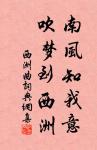 南風知我意
吹梦到西洲
西洲曲詞典網集